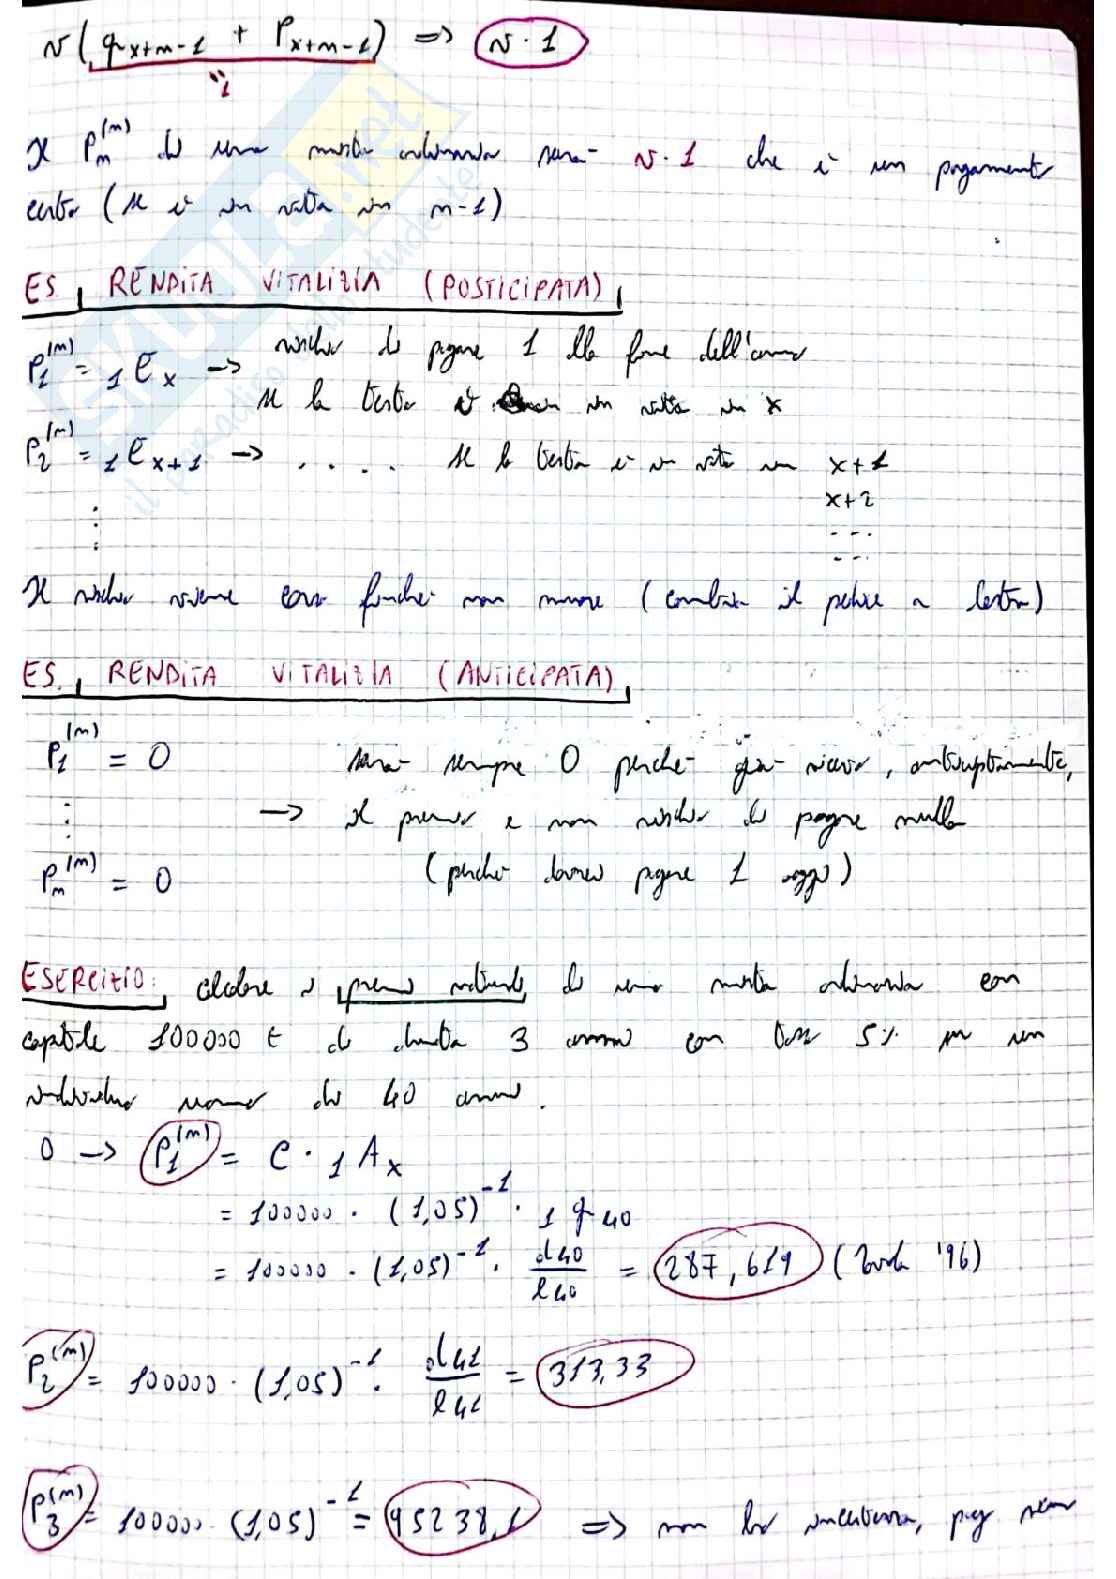 v (q x+m-1 + p x+m-1) => v · 1
"1
Il P_m^(m) di una mista ordinaria sarà v · 1 che è un pagamento
certo (se è in vita in m-1)
ES. RENDITA VITALIZIA (POSTICIPATA)
P_1^(m) = ₁E_x -> rischio di pagare 1 alla fine dell'anno
se la testa è in vita in x
P_2^(m) = ₁E_x+1 -> . . . . se la testa è in vita in x+1
x+2
Il rischio rimane così finché non muore (cambia il pedice a destra)
ES. RENDITA VITALIZIA (ANTICIPATA)
P_1^(m) = 0 sarà sempre 0 perché già ricevo, anticipatamente,
-> il premio e non rischio di pagare nulla
P_m^(m) = 0 (perché dovrei pagare 1 oggi)
ESERCIZIO: calcolare i premi naturali di una mista ordinaria con
capitale 100000 € di durata 3 anni con tasso 5% per un
individuo uomo di 40 anni.
0 -> P_1^(m) = C · ₁A_x
= 100000 · (1,05)^-1 · ₁q_40
= 100000 · (1,05)^-1 · d40/l40 = 287,619 ( '96)
P_2^(m) = 100000 · (1,05)^-1 · d41/l41 = 313,33
P_3^(m) = 100000 · (1,05)^-1 = 95238,1 => non ho incertezza, pago
SKUOLA.net
il paradiso dello studente